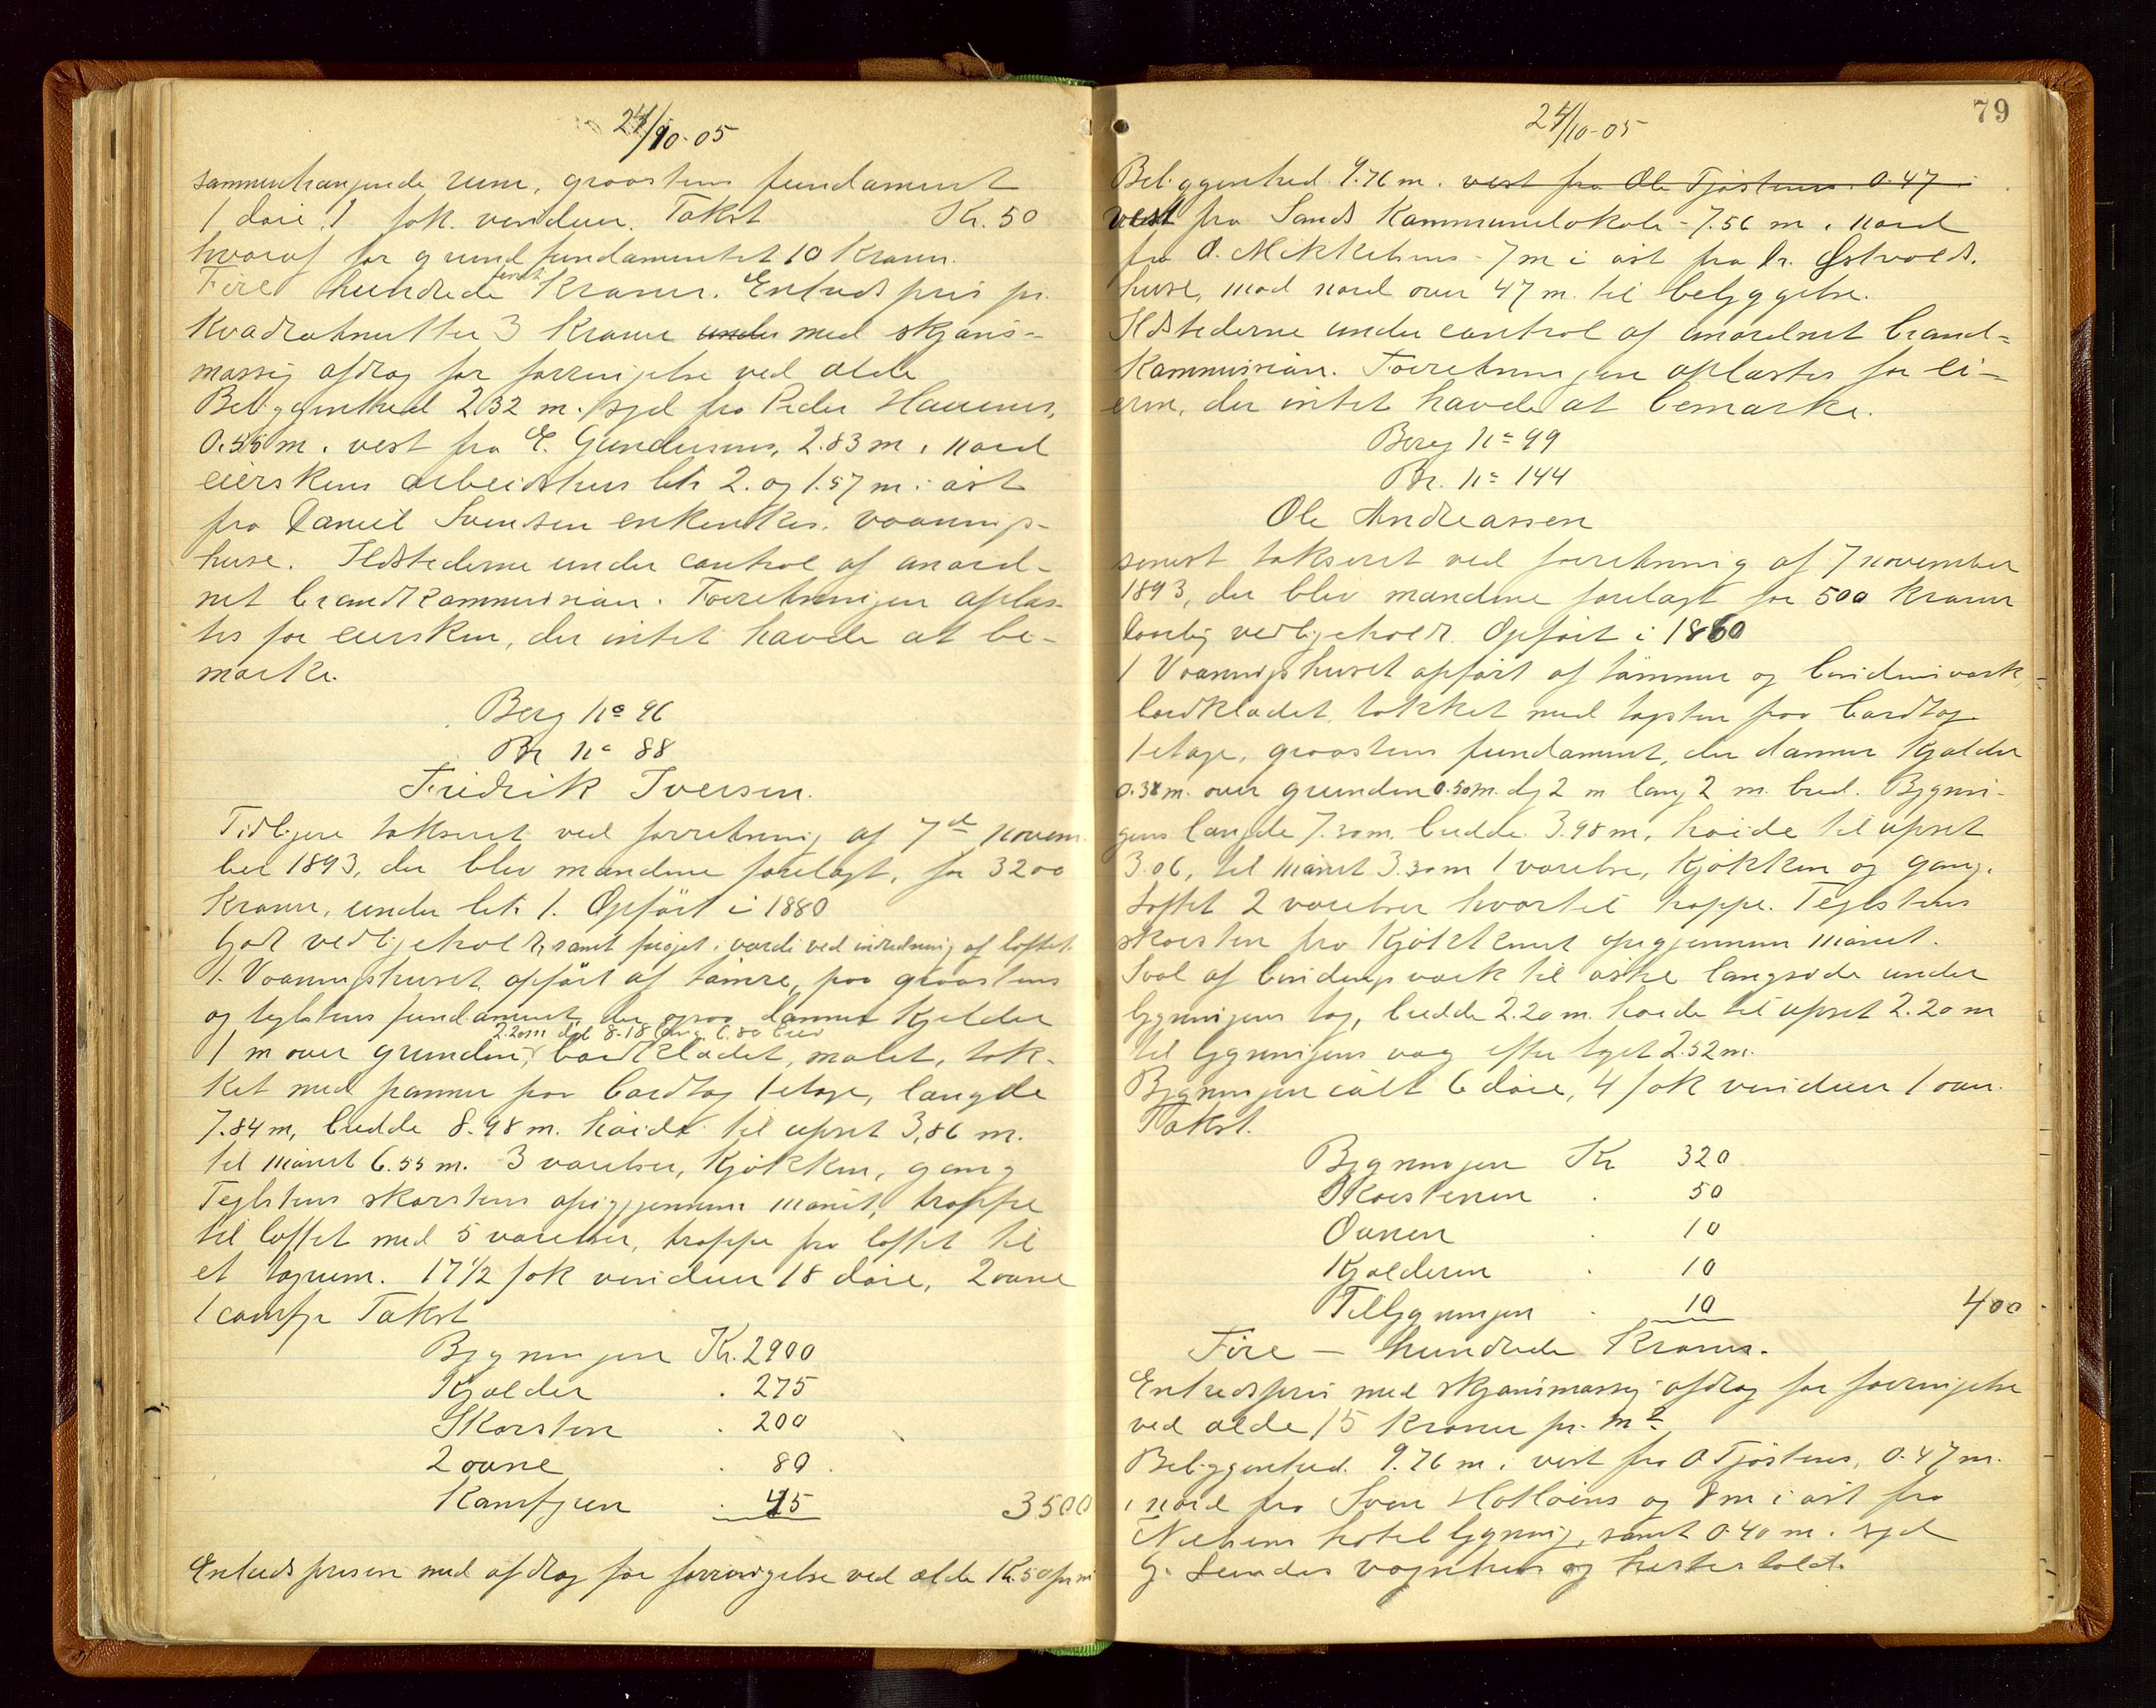 24/10-05
sammenhængende rum, graastens fundament
1 døie, 1 fok. vinduer. Takst Kr. 50
hvoraf for grundfundamentet 10 Kroner.
Fire hundrede femti Kroner. Enhedspris pr.
Kvadratmetter 3 Kroner under med skjøns-
mæssig afdrag for forringelse ved ælde
Beliggenhed 2.32 m. syd fra Peder Hauens,
0.55 m. vest fra E. Gundersens, 2.83 m. nord
eierskens arbeidshus litr 2. og 1.57 m. i øst
fra Daniel Svendsen enkes vaanings-
huse. Ildstederne under control af anord-
net brandkommission. Forretningen oplæs-
tes for eiersken, der intet havde at be-
mærke.
Berg No 96
Br No 88
Fridrik Iversen.
Tidligere takseret ved forretning af 7de novem-
ber 1893, der blev mændene forelagt, for 3200
Kroner, under litr 1. Opført i 1880
God vedligeholdt, samt forøget i værdi ved indredning af loftet
1. Vaaningshuset opført af tømre, paa graastens
og teglstens fundament, der ogsaa danner Kjelder
2.20m dyb 8.18 lang 6.80 bred
1 m over grunden, bordklædet, malet, tæk-
ket med panner paa bordtag 1 etage, længde
7.84 m, bredde 8.98 m. høide til opset 3,86 m.
til mønet 6.55 m. 3 værelser, Kjøkken, gang
Teglstens skorstens opigjennem mønet, trappe
til loftet med 5 værelser, trappe fra loftet til
et tagrum. 17 1/2 fok vinduer 18 døre, 2 ovne
1 comfyr Takst
Bygningen Kr. 2900
Kjælder . 275
Skorsten . 200
2 ovne . 80.
Kamfyren . 45 3500
Enhedsprisen med afdrag for forringelse ved ælde Kr. 50 pr m
79
24/10-05
Beliggenhed 9.76 m. vest fra Ole Tjøstens. 0.47
vest fra Sands Kommunelokale - 7.56 m. nord
fra O. Mikkelsens - 7 m i øst fra Dr. Østvolds.
huse, mod nord over 47 m. til bebyggelse.
Ildstederne under control af anordnet brand-
kommission. Forretningen oplæstes for ei-
eren, der intet havde at bemærke.
Berg No 99
Br. No 144
Ole Andreassen
senest takseret ved forretning af 7 november
1893, der blev mændene forelagt for 500 Kroner
daarlig vedligeholdt. Opført i 1860
1 Vaaningshuset opført af tømmer og bindingsværk,
bordklædet, tækket med tagsten paa bordtag
1 etage, graastens fundament, der danner Kjælder
0.38 m. over grunden 0.50 m. dyb 2 m lang 2 m. bred. Bygnin-
gens længde 7.30 m. bredde 3.98 m, høide til opset
3.06, til mønet 3.30 m 1 værelse, Kjøkken og gang.
Loftet 2 værelser hvortil trappe. Teglstens
skorsten fra Kjøkkenet opigjennem mønet.
Sval af bindingsværk til østre langside under
bygningens tag, bredde 2.20 m. høide til opset 2.20 m
til bygningens væg efter taget 2.52 m.
Bygningen ialt 6 døre, 4 fok vinduer 1 ovn.
Takst.
Bygningen Kr 320
Skorstenen . 50
Ovnen . 10
Kjælderen . 10
Tilbygningen . 10 400
Fire - hundrede Kroner.
Enhedspris med skjønsmæssig afdrag for forringelse
ved ælde 15 Kroner pr. m2
Beliggenhed. 9.76 m. vest fra O Tjøstens, 0.47 m.
i nord fra Sven Hatløens og 8 m i øst fra
Nielsens hotel bygning, samt 0.40 m. syd
G. Lundes vognhus og hestestald.